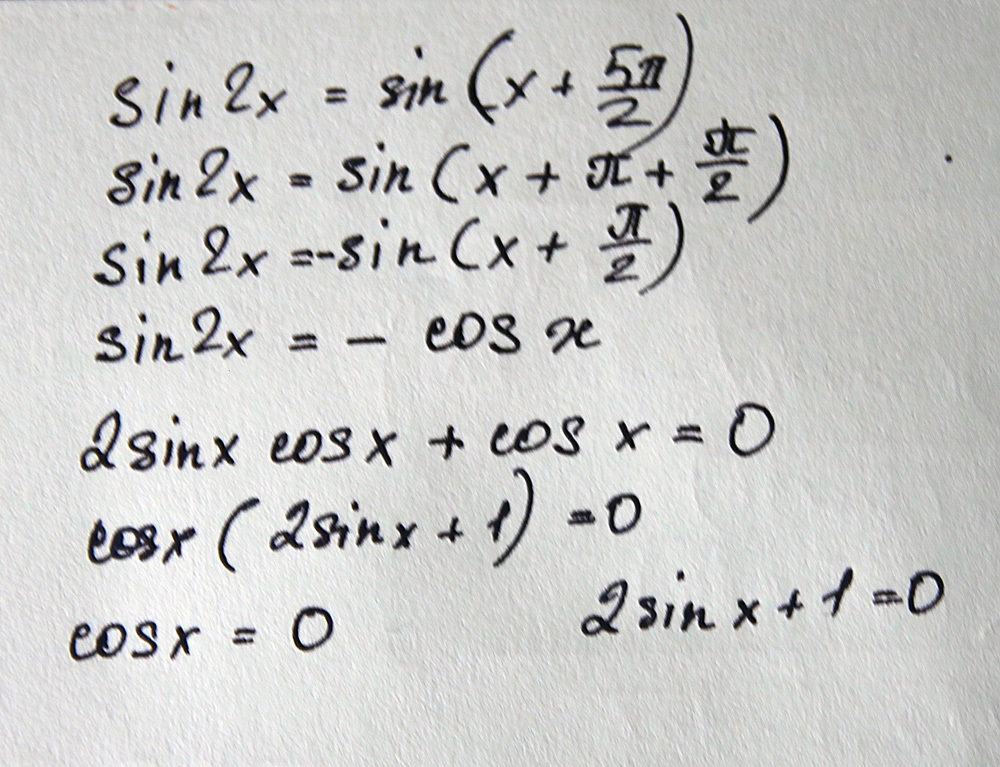 sin 2x = sin (x + 5π/2)
sin 2x = sin (x + π + π/2)
sin 2x = -sin (x + π/2)
sin 2x = - cos x
2 sin x cos x + cos x = 0
cos x (2 sin x + 1) = 0
cos x = 0 2 sin x + 1 = 0